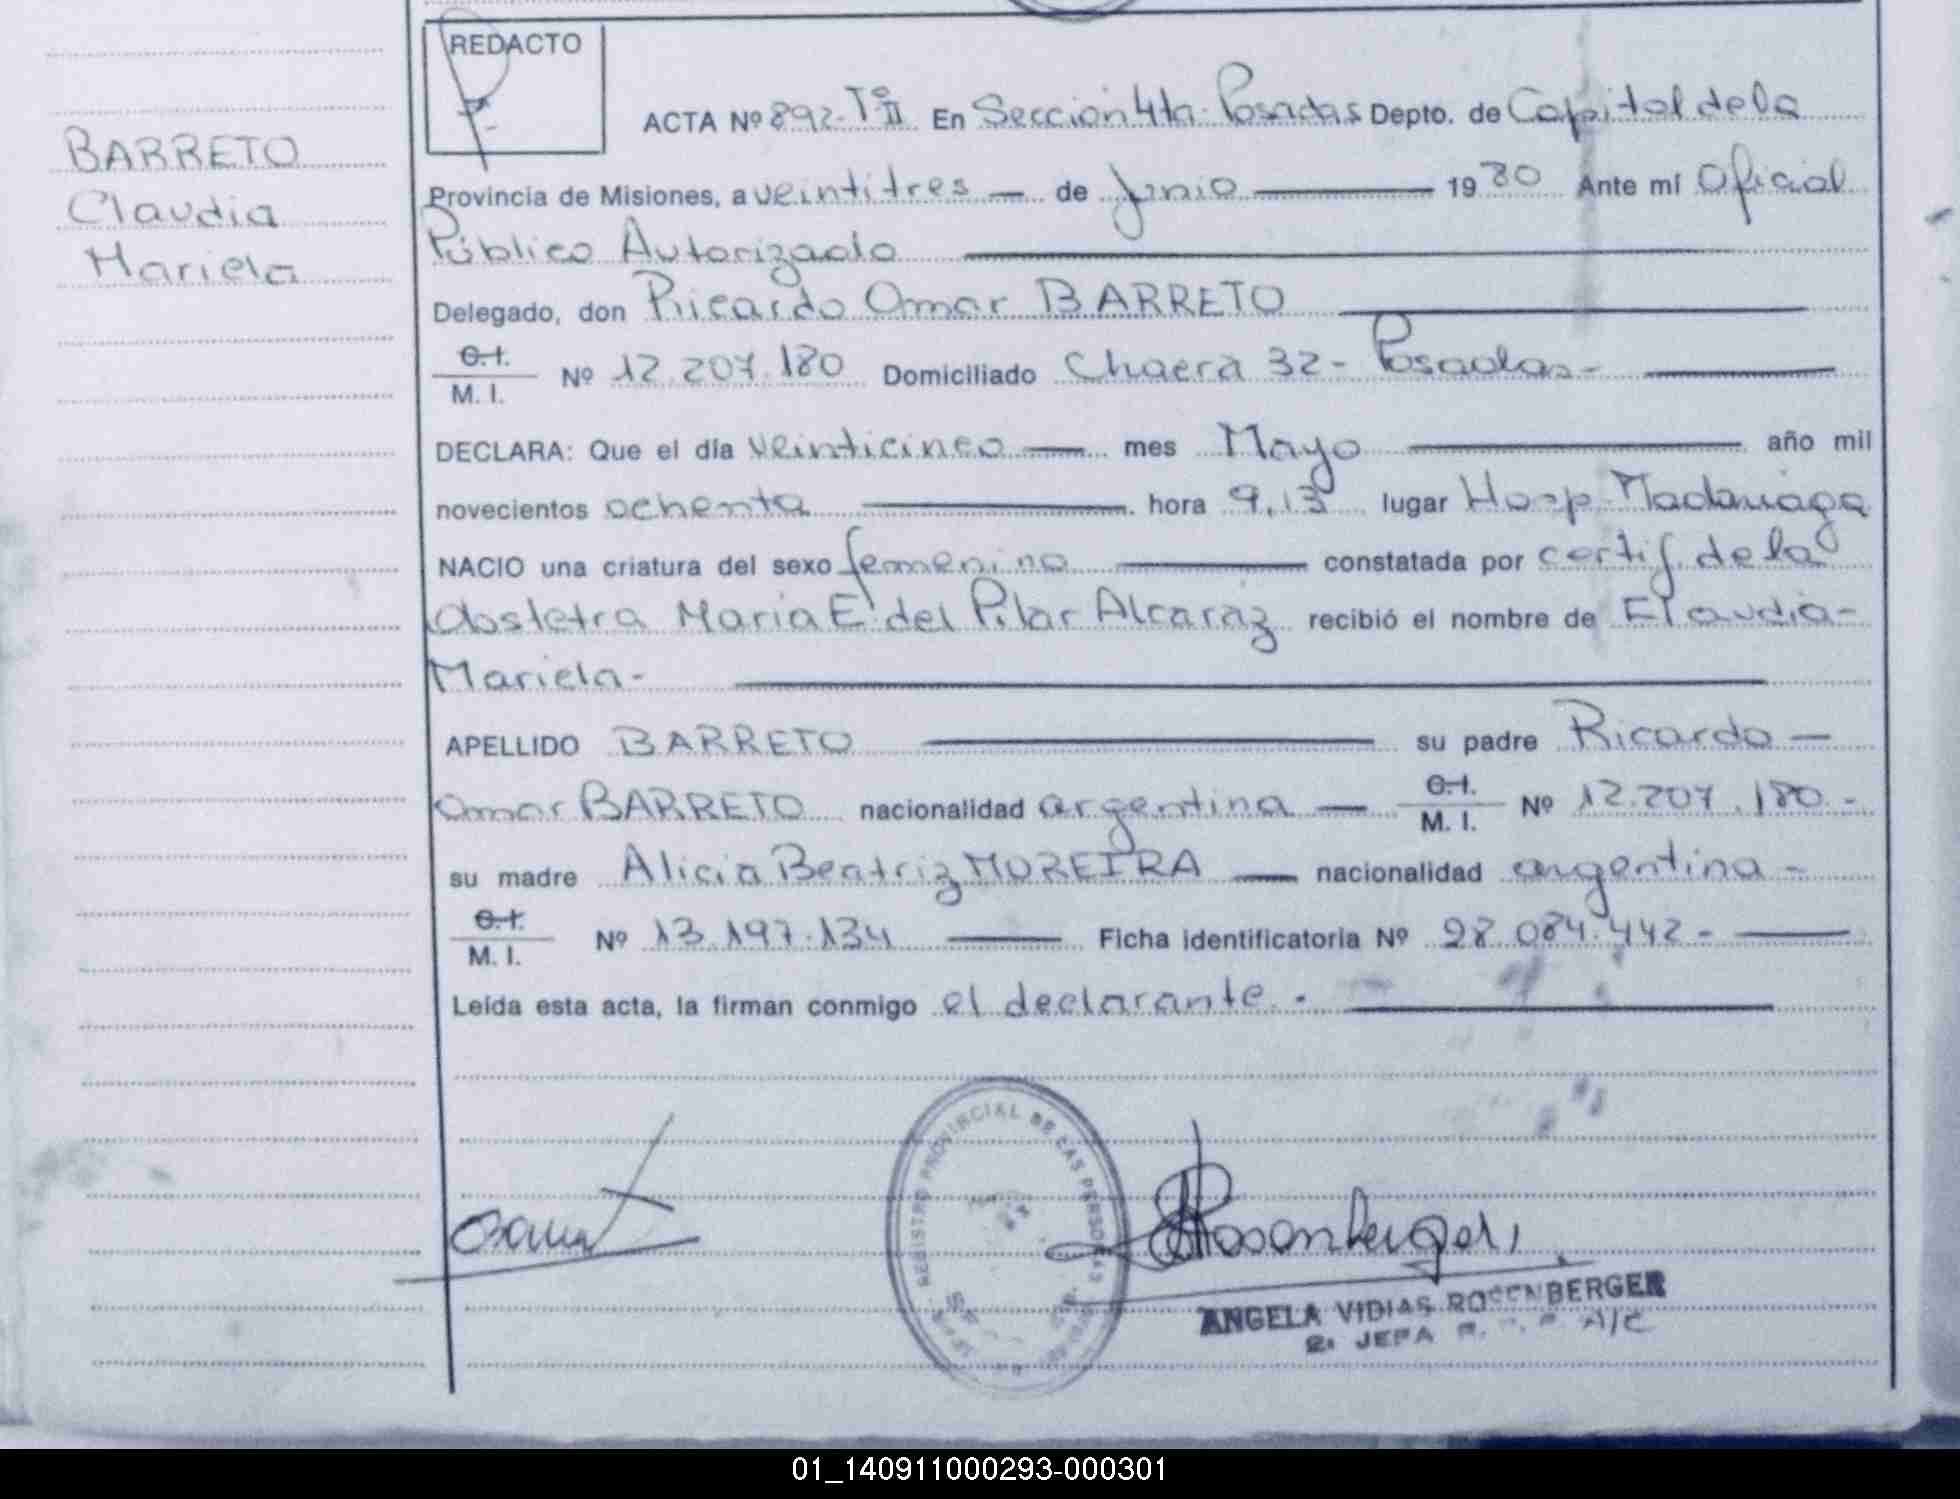 REDACTO
BARRETO
Claudia
Mariela
ACTA Nº 892-Tº II En Sección 4ta. Posadas Depto. de Capital de la
Provincia de Misiones, a veintitres — de Junio — 1980 Ante mí Oficial
Público Autorizado —
Delegado, don Ricardo Omar BARRETO —
C.I.
M. I. Nº 12.207.180 Domiciliado Chacra 32- Posadas- —
DECLARA: Que el día veinticinco — mes Mayo — año mil
novecientos ochenta — hora 9,15 lugar Hosp. Madariaga
NACIO una criatura del sexo femenino — constatada por certif. de la
Obstetra Maria E. del Pilar Alcaraz recibió el nombre de Claudia-
Mariela- —
APELLIDO BARRETO — su padre Ricardo —
Omar BARRETO nacionalidad argentina — C.I.
M. I. Nº 12.207.180.-
su madre Alicia Beatriz MOREIRA — nacionalidad argentina -
C.I.
M. I. Nº 13.197.134 — Ficha identificatoria Nº 28.084.442- —
Leída esta acta, la firman conmigo el declarante. - —
REGISTRO PROVINCIAL DE LAS PERSONAS
Rosenberger
ANGELA VIDIAS ROSENBERGER
2. JEFA A/C
01_140911000293-000301